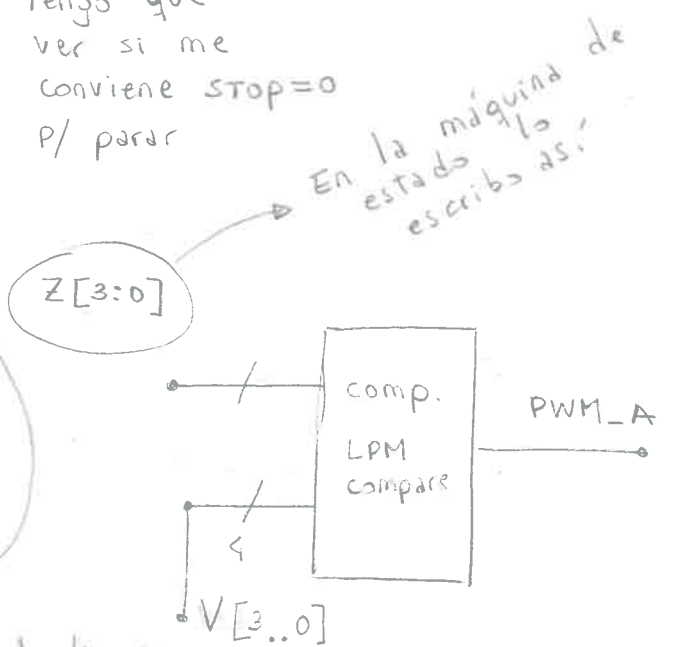 Tengo que
ver si me
conviene STOP=0
P/ parar
En la máquina de
estado lo
escribo así:
Z[3:0]
comp.
LPM
compare
PWM_A
4
V[3..0]